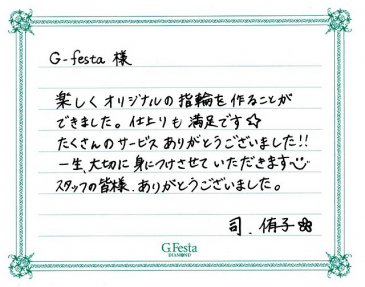 G-festa 様
楽しくオリジナルの指輪を作ることが
できました。仕上りも満足です☆
たくさんのサービスありがとうございました!!
一生、大切に身につけさせていただきます
スタッフの皆様、ありがとうございました。
司、侑子
G.Festa
DIAMOND